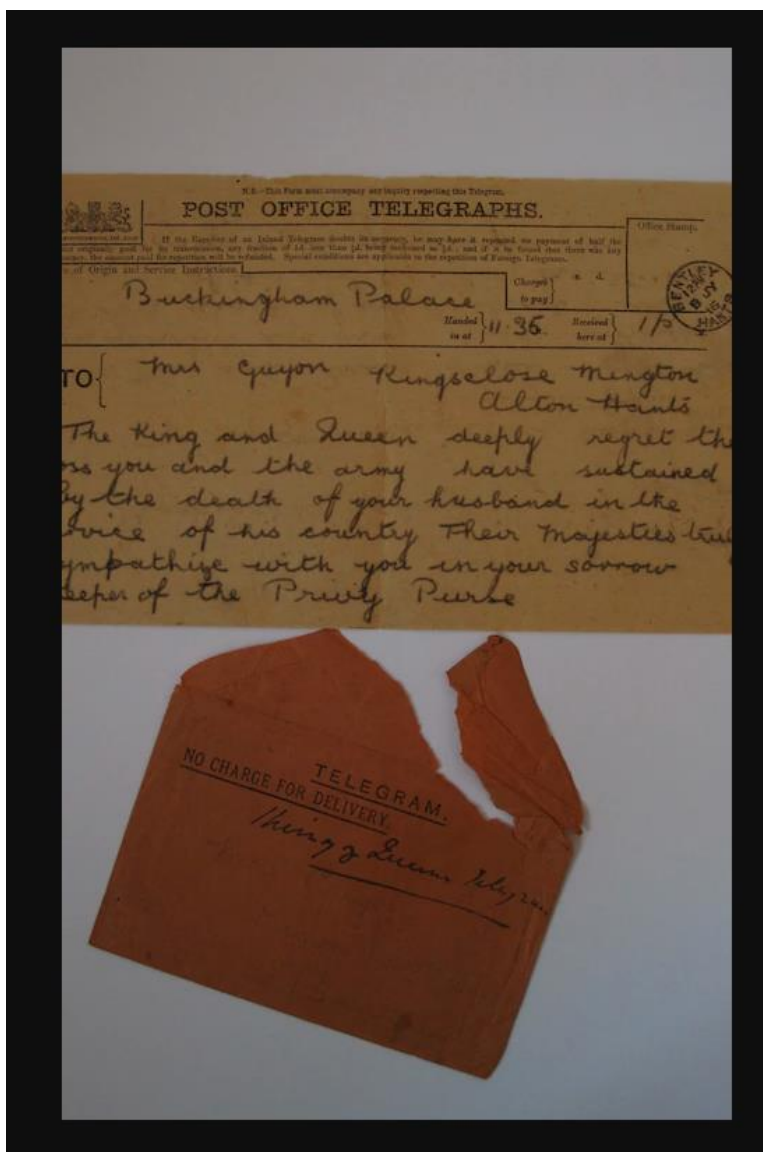 N.B.—This Form must accompany any inquiry respecting this Telegram.
POST OFFICE TELEGRAPHS.
If the Receiver of an Inland Telegram doubts its accuracy, he may have it repeated on payment of half the
originally paid for its transmission, any fraction of 1d. less than ½d. being reckoned as ½d.; and if it be found that there was any
the amount paid for repetition will be refunded. Special conditions are applicable to the repetition of Foreign Telegrams.
of Origin and Service Instructions.
Office Stamp.
Charged to pay
s. d.
Buckingham Palace
BENTLEY
8 JY
16
HANTS
Handed in at
11.35
Received here at
TO
Mrs Guyon Kingsclose Mington
Alton Hants
The King and Queen deeply regret the
oss you and the army have sustained
by the death of your husband in the
rvice of his country Their Majesties tru
ympathize with you in your sorrow
eeper of the Privy Purse
TELEGRAM.
NO CHARGE FOR DELIVERY.
King & Queens Telegram